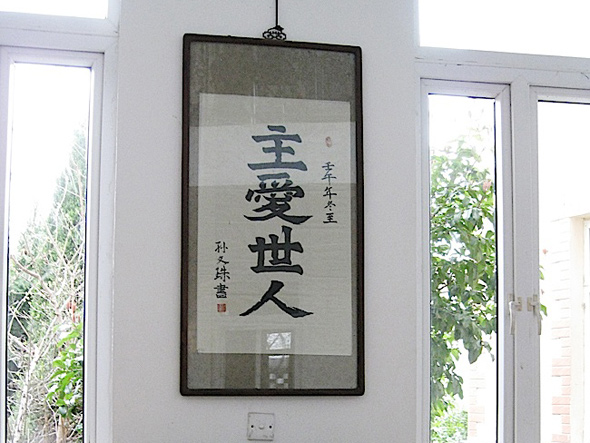 壬午年冬至
主愛世人
孙又珠書